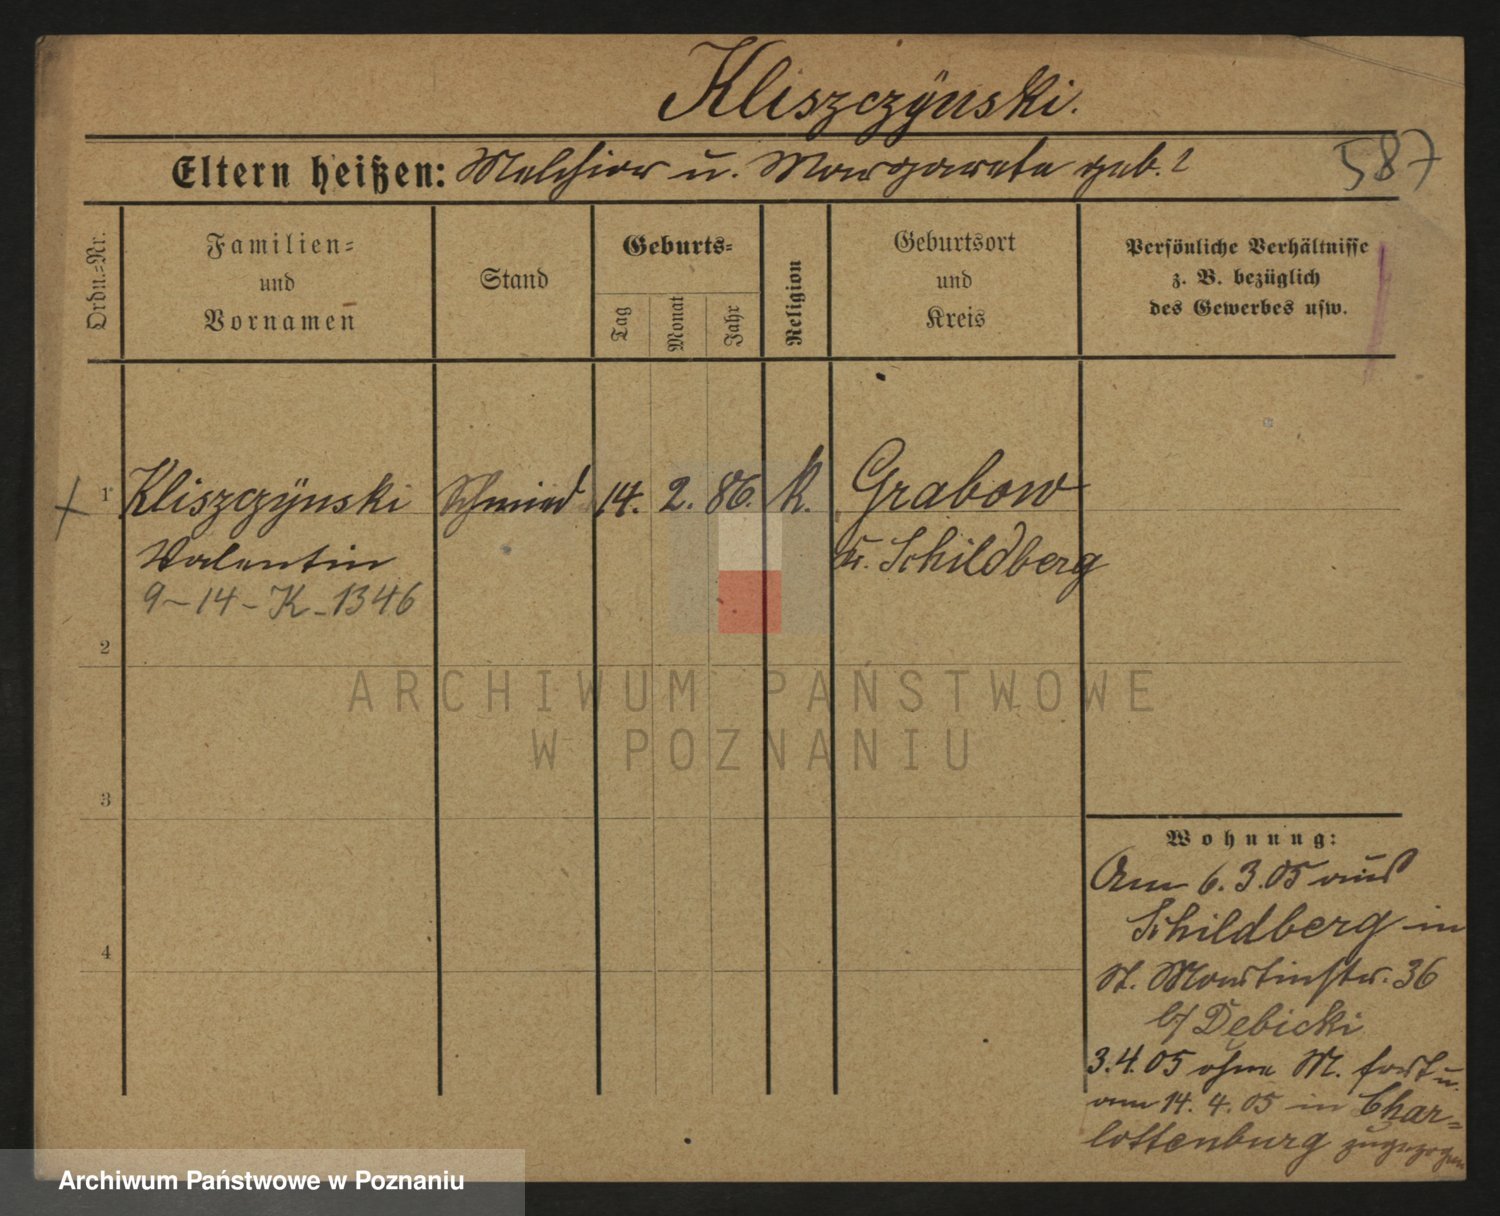 Kliszczÿnski.
Eltern heißen: Melchior u. Margareta geb. ?
587
Ordn.=Nr.
Familien=
und
Vornamen
Stand
Geburts=
Tag
Monat
Jahr
Religion
Geburtsort
und
Kreis
Persönliche Verhältnisse
z. B. bezüglich
des Gewerbes usw.
1 Kliszczÿnski Schmied 14. 2. 86. k. Grabow
Valentin Kr. Schildberg
9-14-K-1346
2
ARCHIWUM PAŃSTWOWE
W POZNANIU
3
Wohnung:
Am 6.3.05 aus
Schildberg in
St. Martinstr. 36
b/ Dębicki
3.4.05 ohne M. fort u.
am 14.4.05 in Char=
lottenburg zugezogen
4
Archiwum Państwowe w Poznaniu